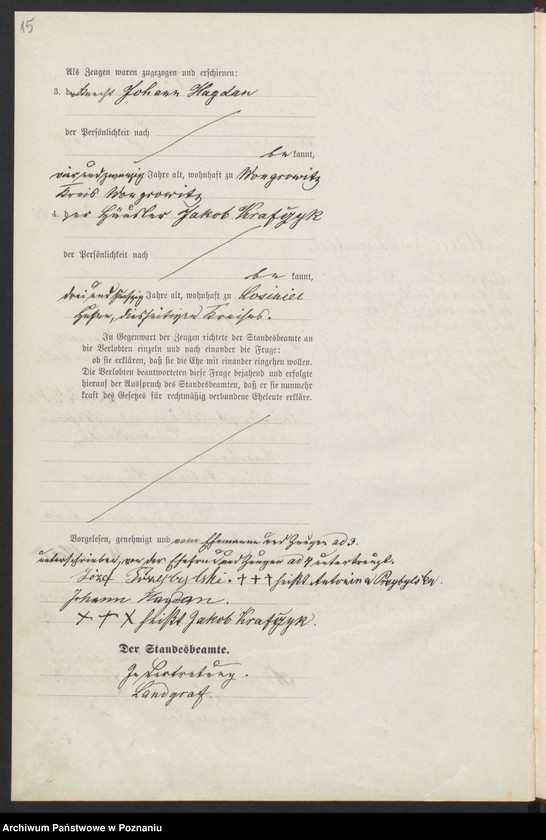 15
Als Zeugen waren zugezogen und erschienen:
3. der Knecht Johann Hagdan
der Persönlichkeit nach
be kannt,
vierundzwanzig Jahre alt, wohnhaft zu Wongrowitz
Kreis Wongrowitz
4. der Häusler Jakob Krafczyk
der Persönlichkeit nach
be kannt,
dreiundfünfzig Jahre alt, wohnhaft zu Losiniec
diesseitigen Kreises.
In Gegenwart der Zeugen richtete der Standesbeamte an
die Verlobten einzeln und nach einander die Frage:
ob sie erklären, daß sie die Ehe mit einander eingehen wollen.
Die Verlobten beantworteten diese Frage bejahend und erfolgte
hierauf der Ausspruch des Standesbeamten, daß er sie nunmehr
kraft des Gesetzes für rechtmäßig verbundene Eheleute erkläre.
Vorgelesen, genehmigt und vom Ehemanne und Zeugen ad 3.
unterschrieben, von der Ehefrau und Zeugen ad 4 unterkreuzt.
Józef Przybylski. +++ heißt Antonina Przybylska.
Johann Hagdan.
+++ heißt Jakob Krafczyk.
Der Standesbeamte.
In Vertretung.
Landgraf.
Archiwum Państwowe w Poznaniu